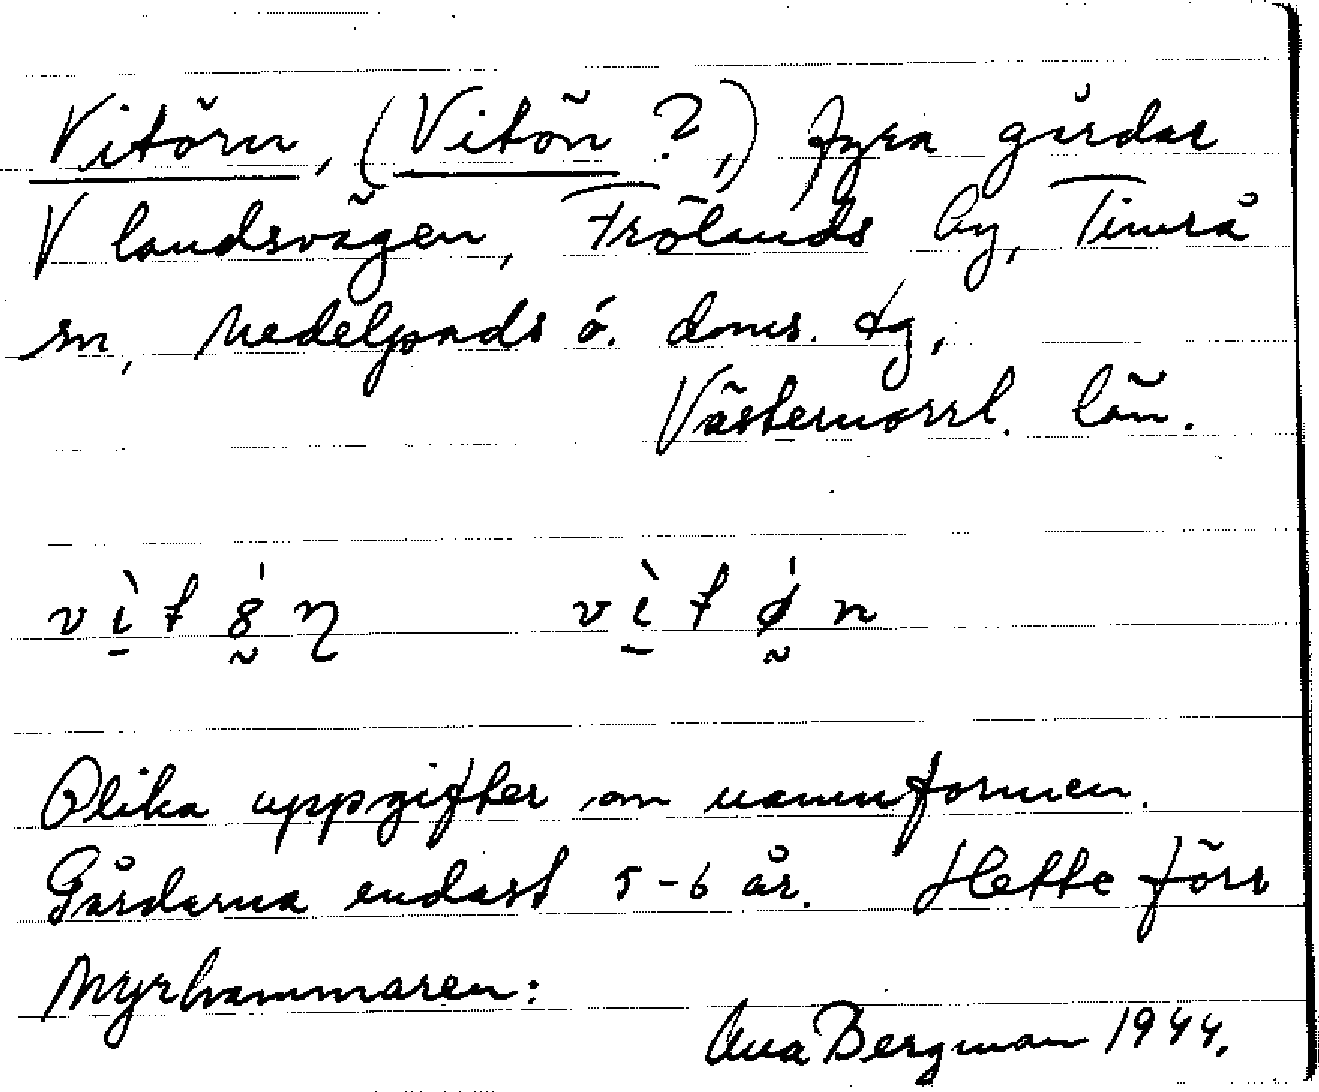 Vitörn, (Vitön ?,) fyra gårdar
V landsvägen, Frölands by, Timrå
sn, Medelpads ö. doms. tg,
Västernorrl. län.
vìtȣ́ɳ vìtǿn
Olika uppgifter om namnformen.
Gårdarna endast 5-6 år. Hette förr
Myrhammaren:
Ava Bergman 1944.